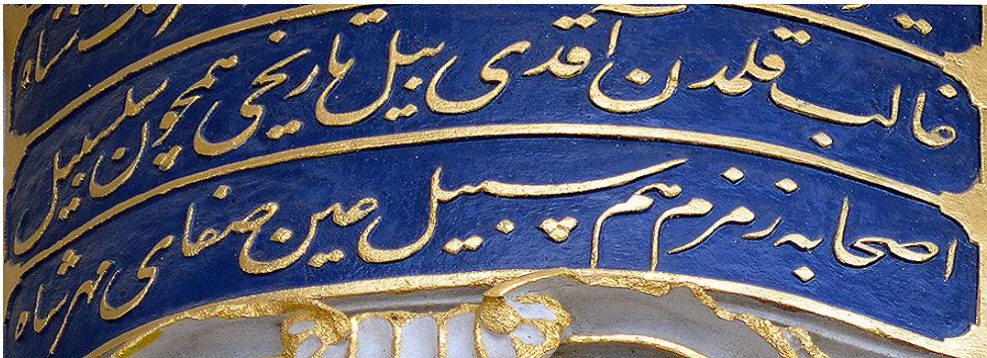 شاه
غالب قلدن آقدی بیل تاریخی همچون سلسبیل
اصحابه زمزم هم سبیل عین صفای نهر شاه